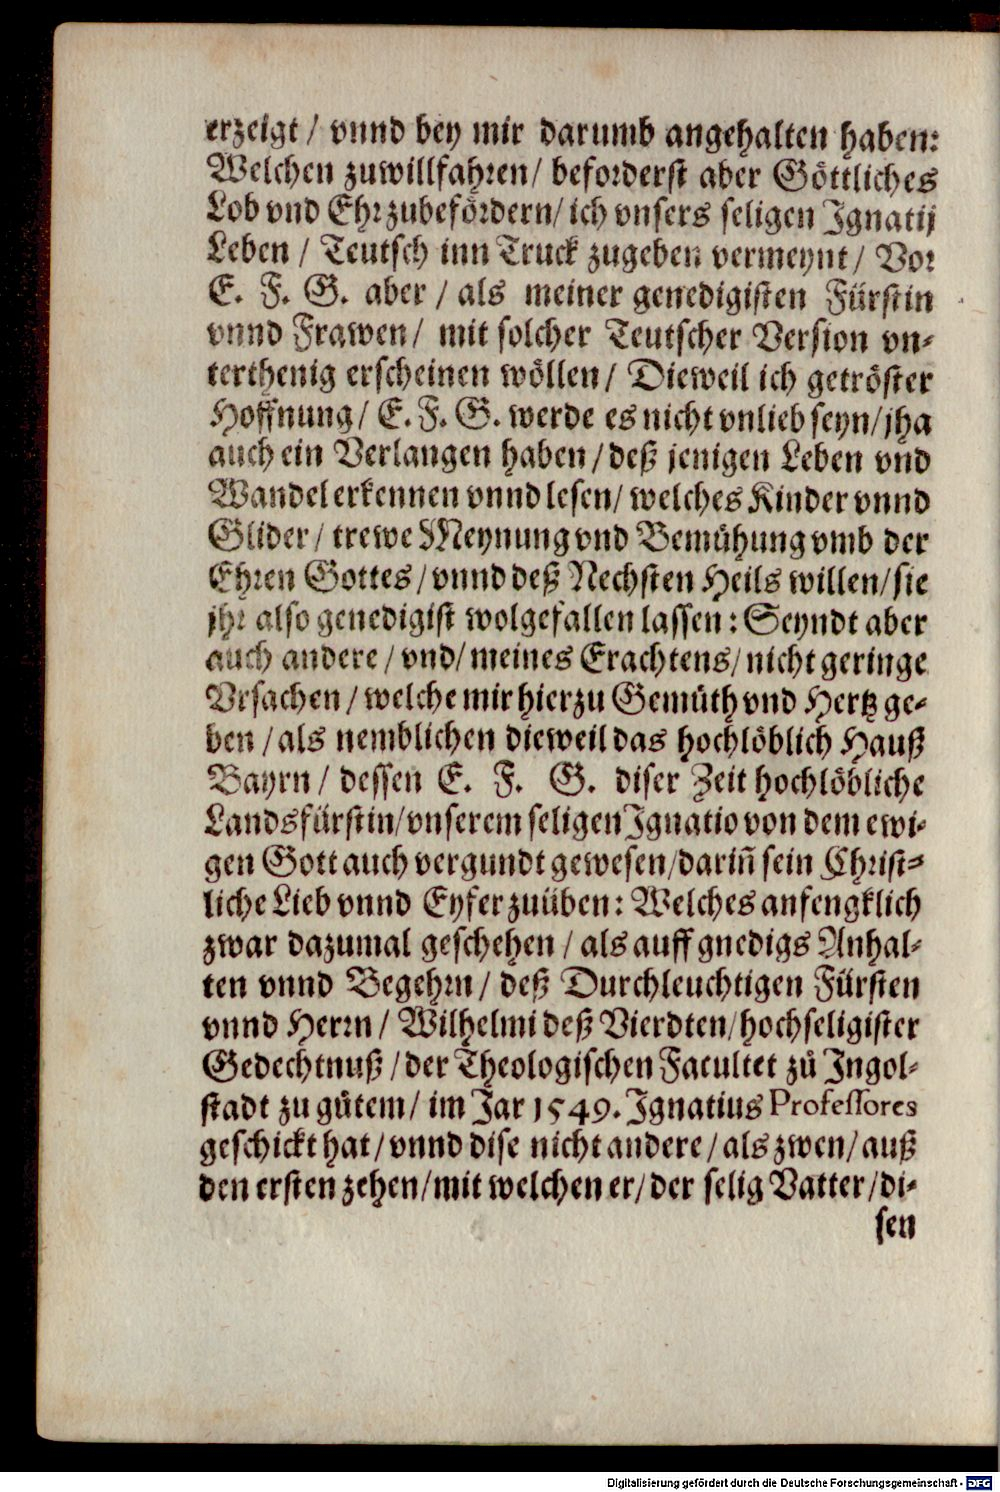 erzeigt / vnnd bey mir darumb angehalten haben:
Welchen zuwillfahren/ beforderst aber Göttliches
Lob vnd Ehr zubefördern/ ich vnsers seligen Ignatij
Leben / Teutsch inn Truck zugeben vermeynt/ Vor
E. F. G. aber / als meiner genedigisten Fürstin
vnnd Frawen/ mit solcher Teutscher Version vn-
terthenig erscheinen wöllen/ Dieweil ich getröster
Hoffnung/ E. F. G. werde es nicht vnlieb seyn/ jha
auch ein Verlangen haben/ deß jenigen Leben vnd
Wandel erkennen vnnd lesen/ welches Kinder vnnd
Glider/ trewe Meynung vnd Bemühung vmb der
Ehren Gottes/ vnnd deß Nechsten Heils willen/ sie
jhr also genedigist wolgefallen lassen: Seyndt aber
auch andere / vnd/ meines Erachtens/ nicht geringe
Vrsachen / welche mir hierzu Gemüth vnd Hertz ge-
ben / als nemblichen dieweil das hochlöblich Hauß
Bayrn/ dessen E. F. G. diser Zeit hochlöbliche
Landsfürstin/ vnserem seligen Ignatio von dem ewi-
gen Gott auch vergundt gewesen/ dariñ sein Christ-
liche Lieb vnnd Eyfer zuüben: Welches anfengklich
zwar dazumal geschehen / als auff gnedigs Anhal-
ten vnnd Begehrn/ deß Durchleuchtigen Fürsten
vnnd Herrn/ Wilhelmi deß Vierdten/ hochseligister
Gedechtnuß / der Theologischen Facultet zů Ingol-
stadt zu gůtem/ im Jar 1549. Ignatius Professores
geschickt hat/ vnnd dise nicht andere/ als zwen/ auß
den ersten zehen/ mit welchen er/ der selig Vatter/ di-
sen
Digitalisierung gefördert durch die Deutsche Forschungsgemeinschaft - DFG